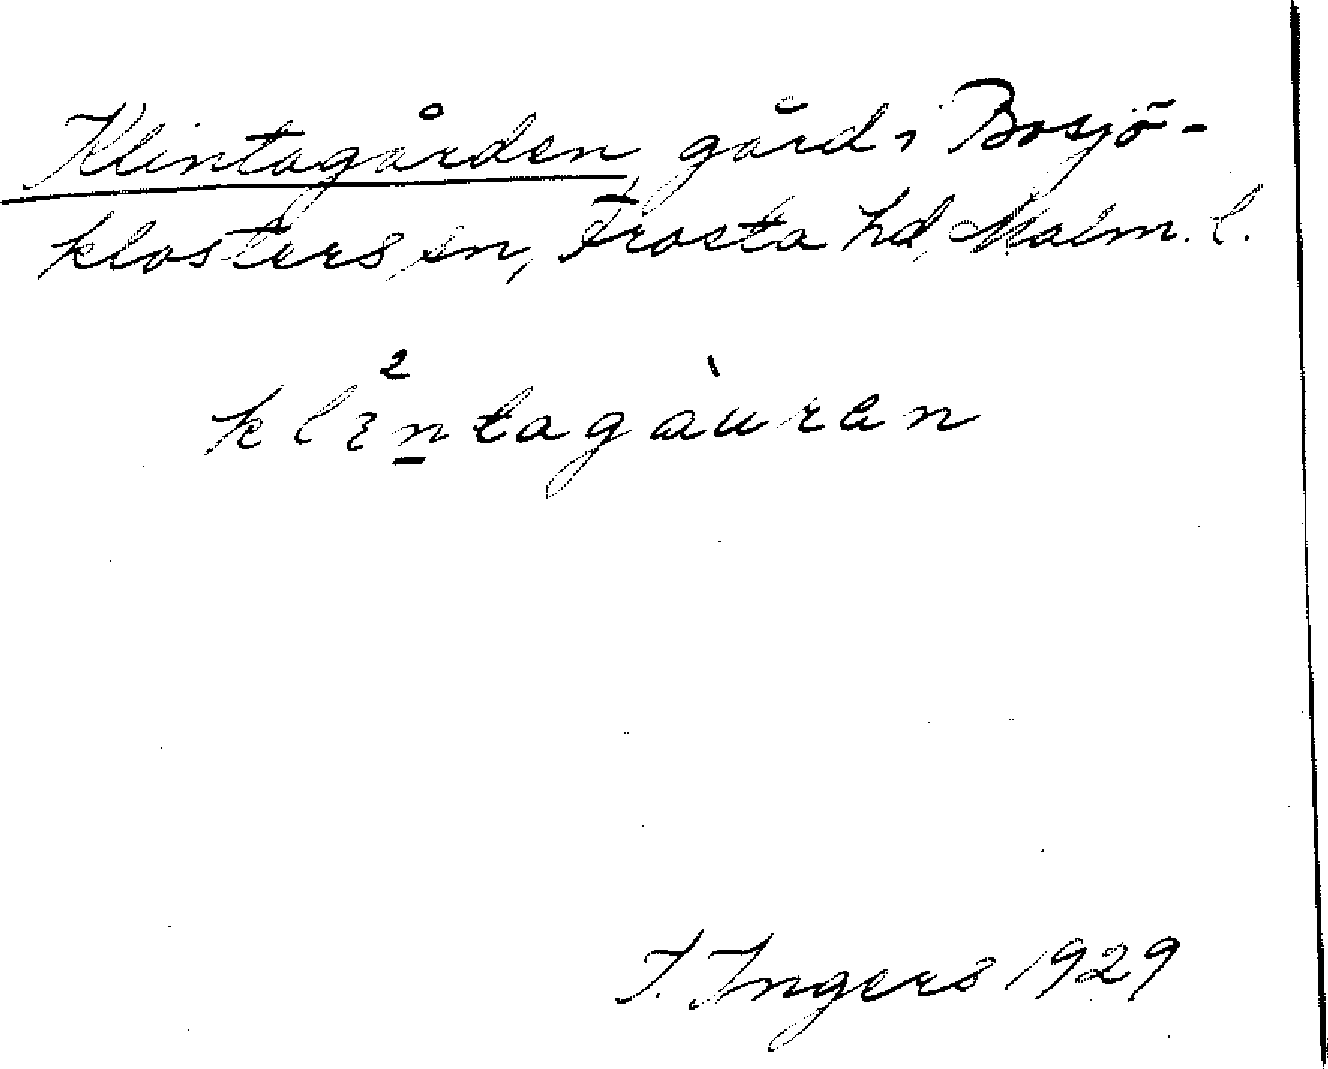 Klintagården, gård i Bosjö-
klosters sn, Frosta hd, Malm. l.
klı̊²n̲tagàuran
I. Ingers 1929